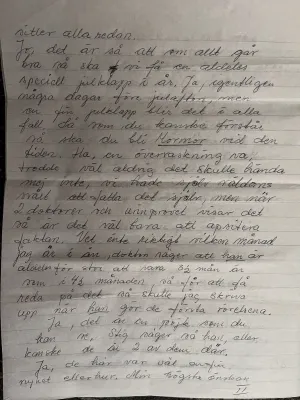 alla redan.
Jo, det är så att om allt går
bra så ska vi få en alldeles
speciell julklapp i år. Ja, egentligen
några dagar före julafton, men
en fin julklapp blir det i alla
fall. Så som du kanske förstår
så ska du bli Kormor med den
tiden. Ha, en överraskning va,
trodde väl aldrig det skulle hända
mej inte, vi hade själv
svårt att fatta det själv, men när
2 doktorer och urinprovet visar det
så är det väl bara att
faktan. Vet inte riktigt vilken månad
jag är i än, doktorn säger att han är
för stor att vara 3½ mån än
som 4½ månaden, så för att få
reda på det så skulle jag skriva
upp när han gör de första rörelserna.
Ja, det är en pojke som du
kan se, Stig säger så här, eller
kanske de är 2 av dem där.
Ja, de här var väl en fin
nyhet eller hur. Min högsta önskan